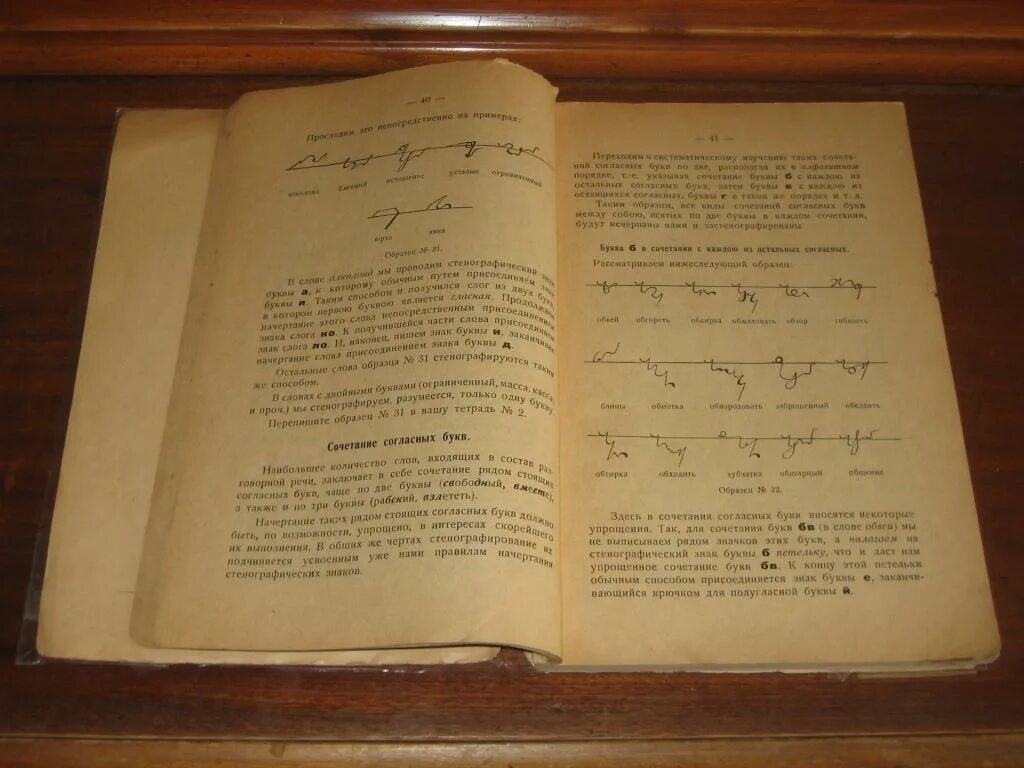 — 40 —
Проследим это непосредственно на примерах:
алколоид Евгений истощение усталые ограниченный
юрта явка
Образец № 31.
В слове алколоид мы проводим стенографический знак
буквы а, к которому обычным путем присоединяем знак
буквы л. Таким способом и получился слог из двух букв,
в котором первою буквою является гласная. Продолжаем
начертание этого слова непосредственным присоединением
знака слога ко. К получившейся части слова присоединяем
знак слога ло. И, наконец, пишем знак буквы и, заканчивая
начертание слова присоединением знака буквы д.
Остальные слова образца № 31 стенографируются таким
же способом.
В словах с двойными буквами (ограниченный, масса, касса
и проч.) мы стенографируем, разумеется, только одну букву.
Перепишите образец № 31 в вашу тетрадь № 2.
Сочетание согласных букв.
Наибольшее количество слов, входящих в состав раз-
говорной речи, заключает в себе сочетание рядом стоящих
согласных букв, чаще по две буквы (свободный, вместе),
а также и по три буквы (рабский, взлететь).
Начертание таких рядом стоящих согласных букв должно
быть, по возможности, упрощено, в интересах скорейшего
их выполнения. В общих же чертах стенографирование их
подчиняется усвоенным уже нами правилам начертания
стенографических знаков.
— 41 —
Переходим к систематическому изучению таких сочета-
ний согласных букв по две, располагая их в алфавитном
порядке, т.-е. указывая сочетание буквы б с каждою из
остальных согласных букв, затем буквы в с каждою из
оставшихся согласных, буквы г в таком же порядке и т. д.
Таким образом, все виды сочетаний согласных букв
между собою, взятых по две буквы в каждом сочетании,
будут исчерпаны нами и застенографированы.
Буква б в сочетании с каждою из остальных согласных.
Рассматриваем нижеследующий образец:
обвей обгореть обдирка обжаловать обзор гибкость
блины обмотка обнародовать заброшенный обсадить
обтирка обходить зубчатка обширный общение
Образец № 32.
Здесь в сочетания согласных букв вносятся некоторые
упрощения. Так, для сочетания букв бв (в слове обвей) мы
не выписываем рядом значков этих букв, а налагаем на
стенографический знак буквы б петельку, что и даст нам
упрощенное сочетание букв бв. К концу этой петельки
обычным способом присоединяется знак буквы е, заканчи-
вающийся крючком для полугласной буквы й.